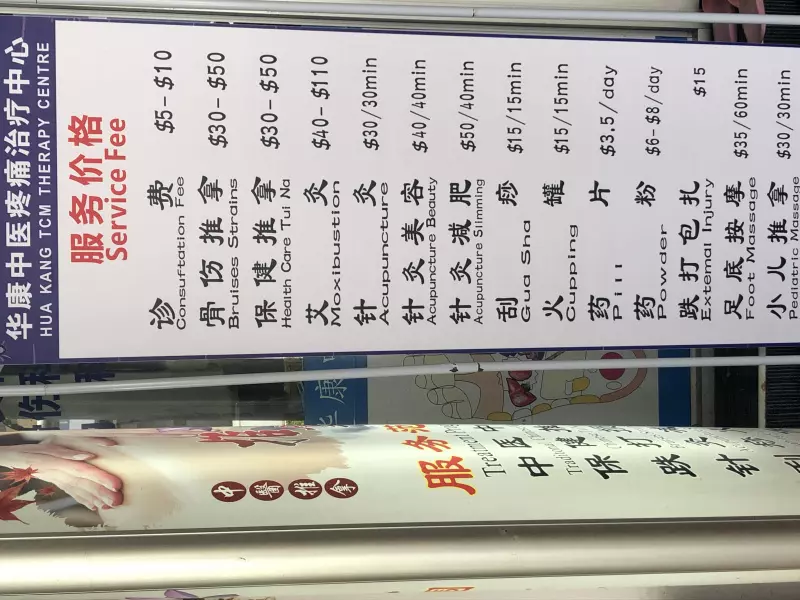 华康中医疼痛治疗中心
HUA KANG TCM THERAPY CENTRE
服务价格
Service Fee
诊 费 $5-$10
Consuftation Fee
骨伤推拿 $30-$50
Bruises Strains
保健推拿 $30-$50
Health Care Tui Na
艾 灸 $40-$110
Moxibustion
针 灸 $30/30min
Acupuncture
针灸美容 $40/40min
Acupuncture Beauty
针灸减肥 $50/40min
Acupuncture Slimming
刮 痧 $15/15min
Gua Sha
火 罐 $15/15min
Cupping
药 片 $3.5/day
Pill
药 粉 $6-$8/day
Powder
跌打包扎 $15
External Injury
足底按摩 $35/60min
Foot Massage
小儿推拿 $30/30min
Pediatric Massage
华康
中醫推拿
服务
Treatment
中医
保健
跌打
针